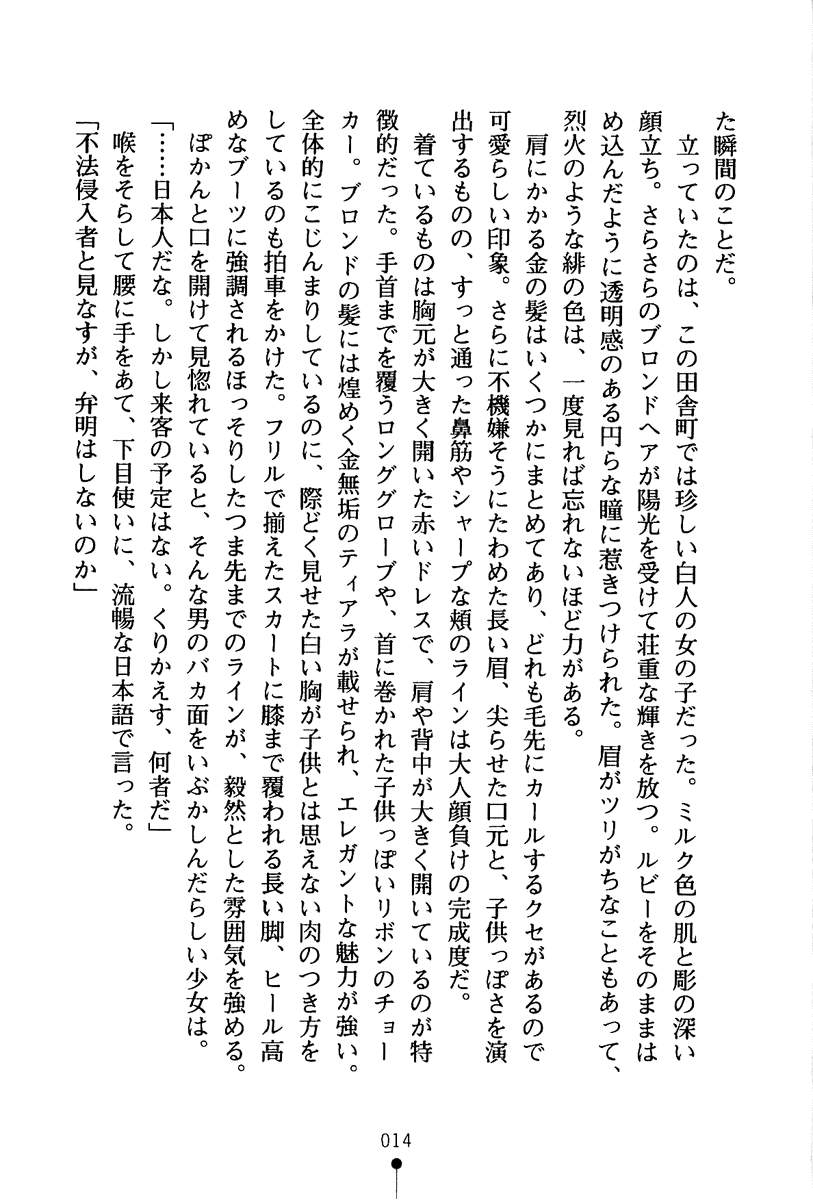 た瞬間のことだ。
　立っていたのは、この田舎町では珍しい白人の女の子だった。ミルク色の肌と彫の深い
顔立ち。さらさらのブロンドヘアが陽光を受けて荘重な輝きを放つ。ルビーをそのままは
め込んだように透明感のある円らな瞳に惹きつけられた。眉がツリがちなこともあって、
烈火のような緋の色は、一度見れば忘れないほど力がある。
　肩にかかる金の髪はいくつかにまとめてあり、どれも毛先にカールするクセがあるので
可愛らしい印象。さらに不機嫌そうにたわめた長い眉、尖らせた口元と、子供っぽさを演
出するものの、すっと通った鼻筋やシャープな頬のラインは大人顔負けの完成度だ。
　着ているものは胸元が大きく開いた赤いドレスで、肩や背中が大きく開いているのが特
徴的だった。手首までを覆うロンググローブや、首に巻かれた子供っぽいリボンのチョー
カー。ブロンドの髪には煌めく金無垢のティアラが載せられ、エレガントな魅力が強い。
全体的にこじんまりしているのに、際どく見せた白い胸が子供とは思えない肉のつき方を
しているのも拍車をかけた。フリルで揃えたスカートに膝まで覆われる長い脚、ヒール高
めなブーツに強調されるほっそりしたつま先までのラインが、毅然とした雰囲気を強める。
　ぽかんと口を開けて見惚れていると、そんな男のバカ面をいぶかしんだらしい少女は。
「……日本人だな。しかし来客の予定はない。くりかえす、何者だ」
　喉をそらして腰に手をあて、下目使いに、流暢な日本語で言った。
「不法侵入者と見なすが、弁明はしないのか」
014